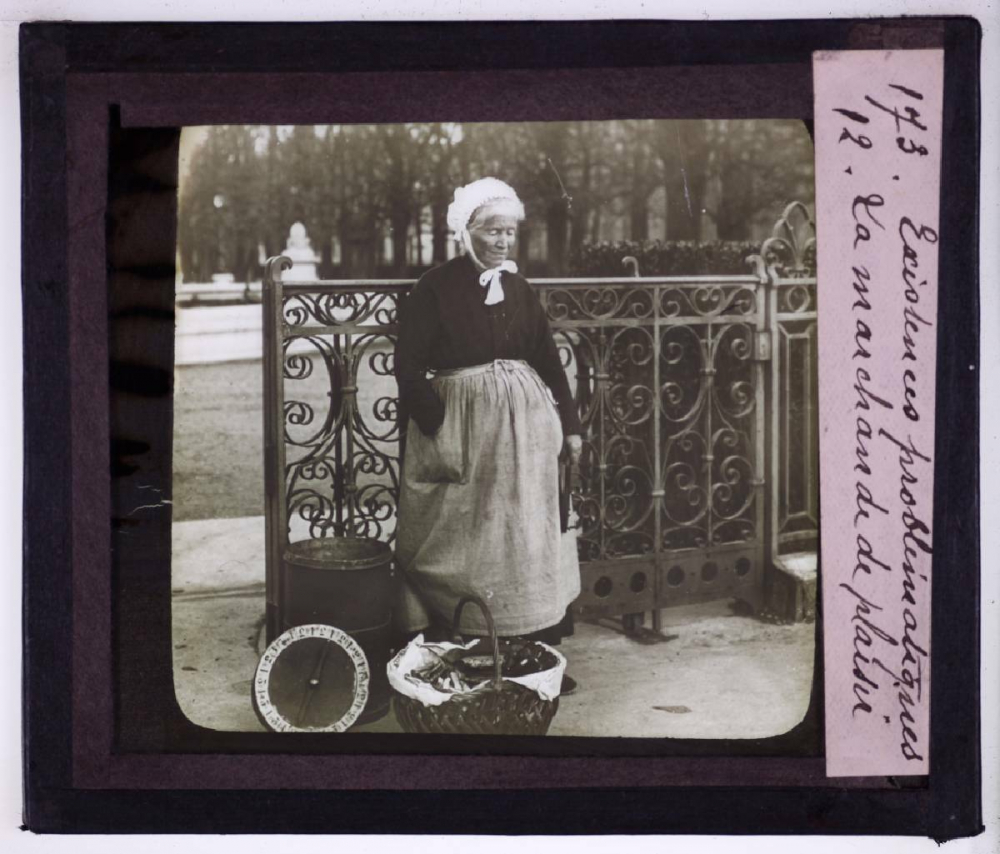 173. Existences problématiques
12. La marchande de plaisir